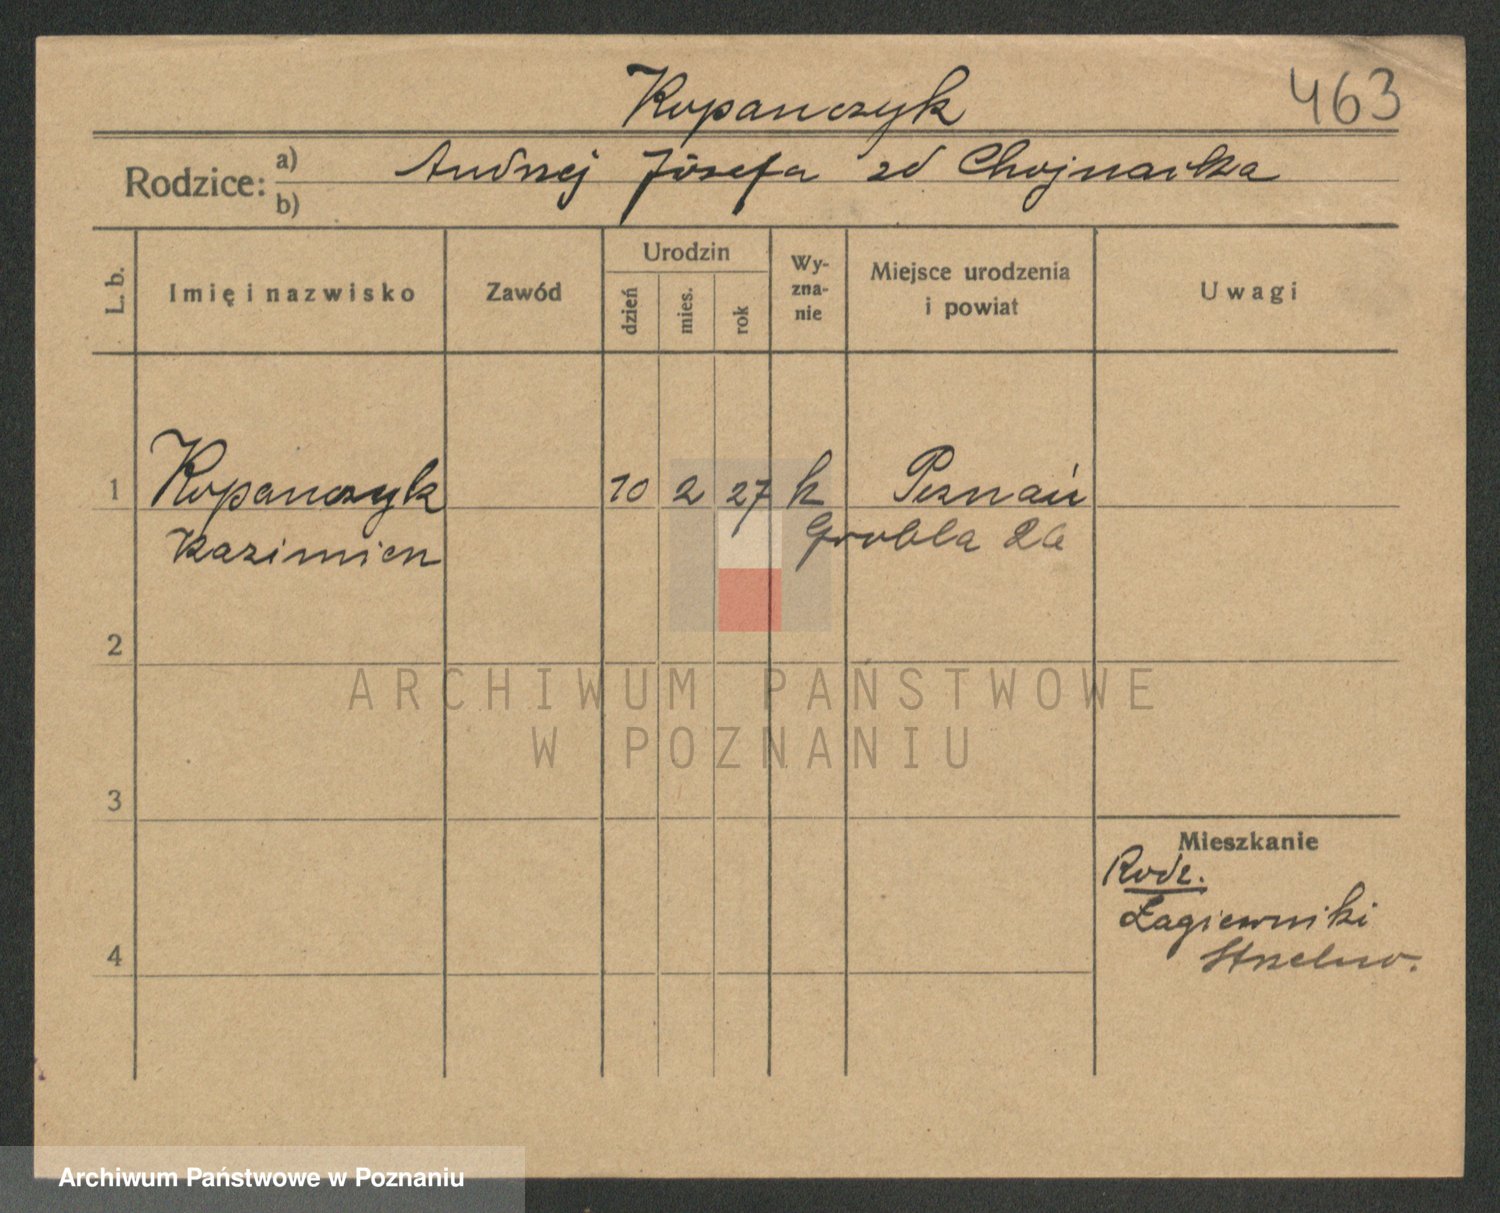 Kopanczyk
463
Rodzice: a) Andrzej Józefa zd Chojnacka
b)
L. b.
Imię i nazwisko
Zawód
Urodzin
dzień
mies.
rok
Wy-
zna-
nie
Miejsce urodzenia
i powiat
Uwagi
1 Kopanczyk 10 2 27 k Poznań
Kazimierz Grobla 26
2
ARCHIWUM PAŃSTWOWE
W POZNANIU
3
Mieszkanie
Rodz.
Łagiewniki
Strzelno.
4
Archiwum Państwowe w Poznaniu